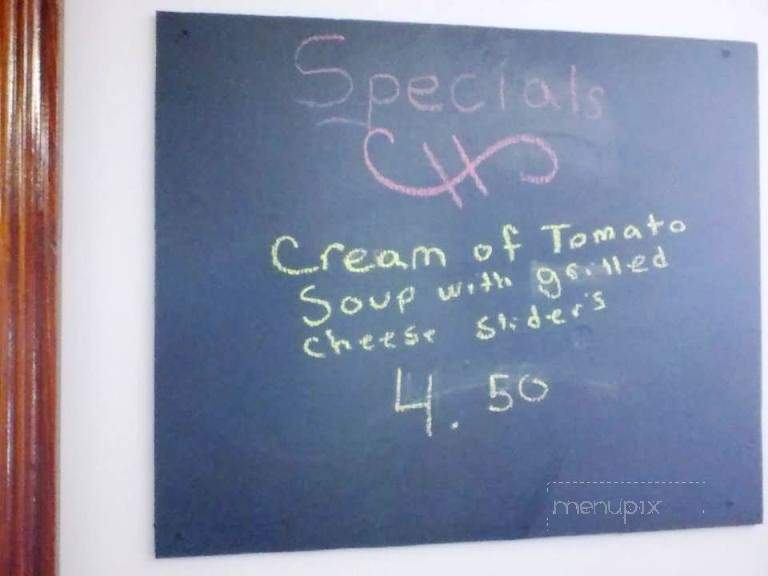 Specials
Cream of Tomato
Soup with grilled
cheese slider's
4.50
menupix